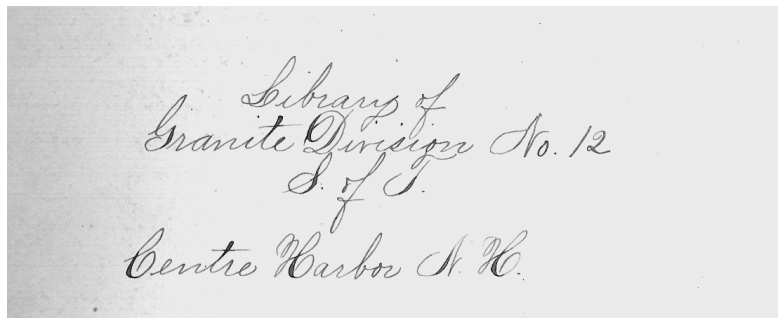 Library of
Granite Division No. 12
S. of T.
Centre Harbor N. H.